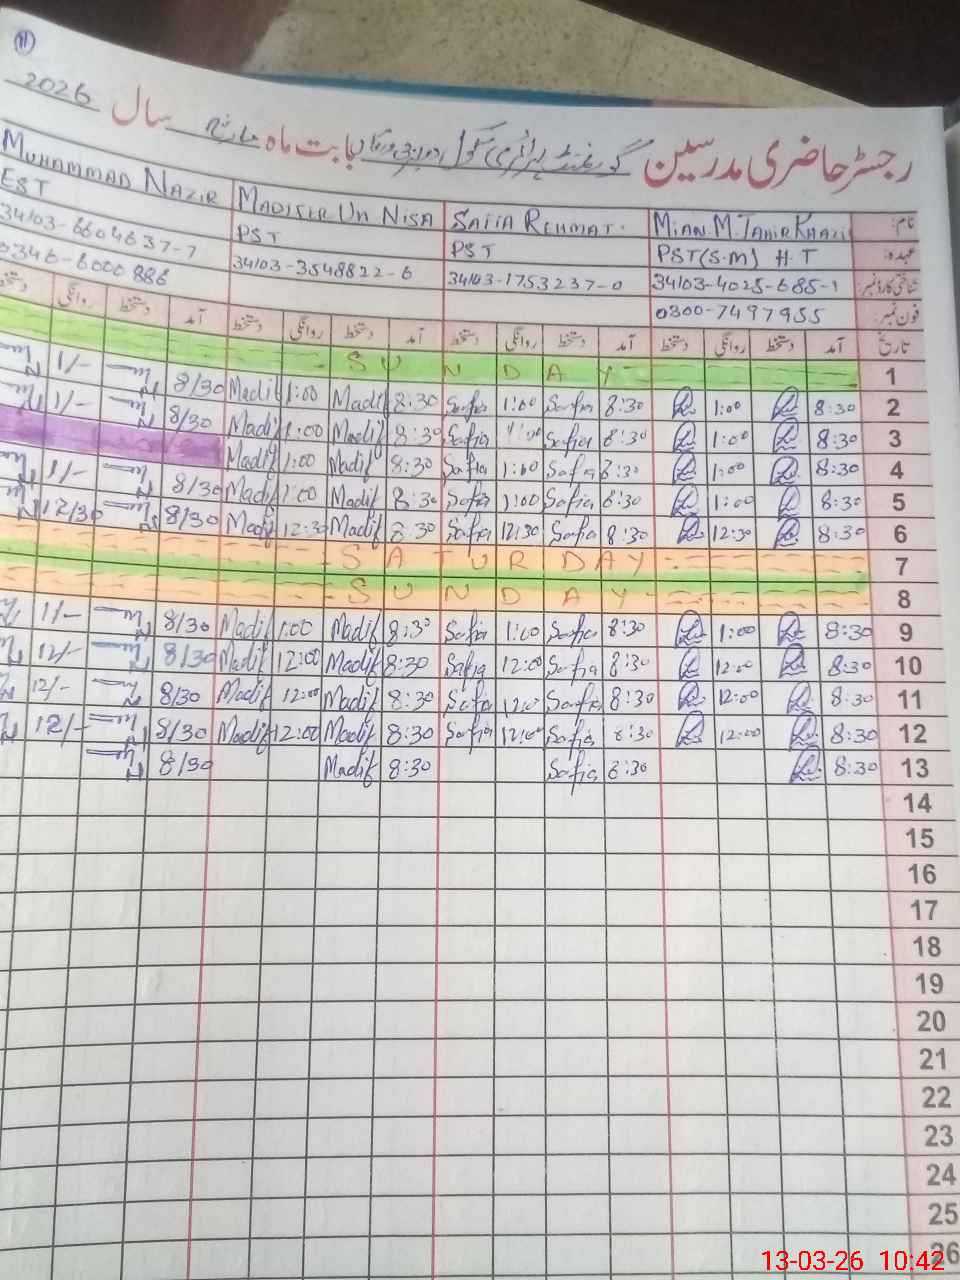 11
رجسٹر حاضری مدرسین گورنمنٹ پرائمری سکول بابت ماہ مارچ سال 2026
نام: MIAN M. TAHIR SAFIA REHMAT. UN NISA MUHAMMAD NAZIR
عہدہ: PST(S.M) H.T PST PST EST
شناختی کارڈ نمبر: 34103-4025-685-1 34103-1753237-0 34103-3548822-6 34103-6604637-7
فون نمبر: 0300-7497955 0346-6000886
تاریخ آمد دستخط روانگی دستخط آمد دستخط روانگی دستخط آمد دستخط روانگی دستخط آمد دستخط روانگی دستخط
1 SUNDAY
2 8:30 1:00 8:30 Safia 1:00 Safia 8:30 Madif 1:00 Madif 8/30 1/-
3 8:30 1:00 8:30 Safia 1:00 Safia 8:30 Madif 1:00 Madif 8/30 1/-
4 8:30 1:00 8:30 Safia 1:00 Safia 8:30 Madif 1:00 Madif
5 8:30 1:00 8:30 Safia 1:00 Safia 8:30 Madif 1:00 Madif 8/30 1/-
6 8:30 12:30 8:30 Safia 12:30 Safia 8:30 Madif 12:30 Madif 8/30 12/30
7 SATURDAY
8 SUNDAY
9 8:30 1:00 8:30 Safia 1:00 Safia 8:30 Madif 1:00 Madif 8/30 1/-
10 8:30 12:00 8:30 Safia 12:00 Safia 8:30 Madif 12:00 Madif 8/30 12/-
11 8:30 12:00 8:30 Safia 12:00 Safia 8:30 Madif 12:00 Madif 8/30 12/-
12 8:30 12:00 8:30 Safia 12:00 Safia 8:30 Madif 12:00 Madif 8/30 12/-
13 8:30 8:30 Safia 8:30 Madif 8/30
14
15
16
17
18
19
20
21
22
23
24
25
26
13-03-26 10:42